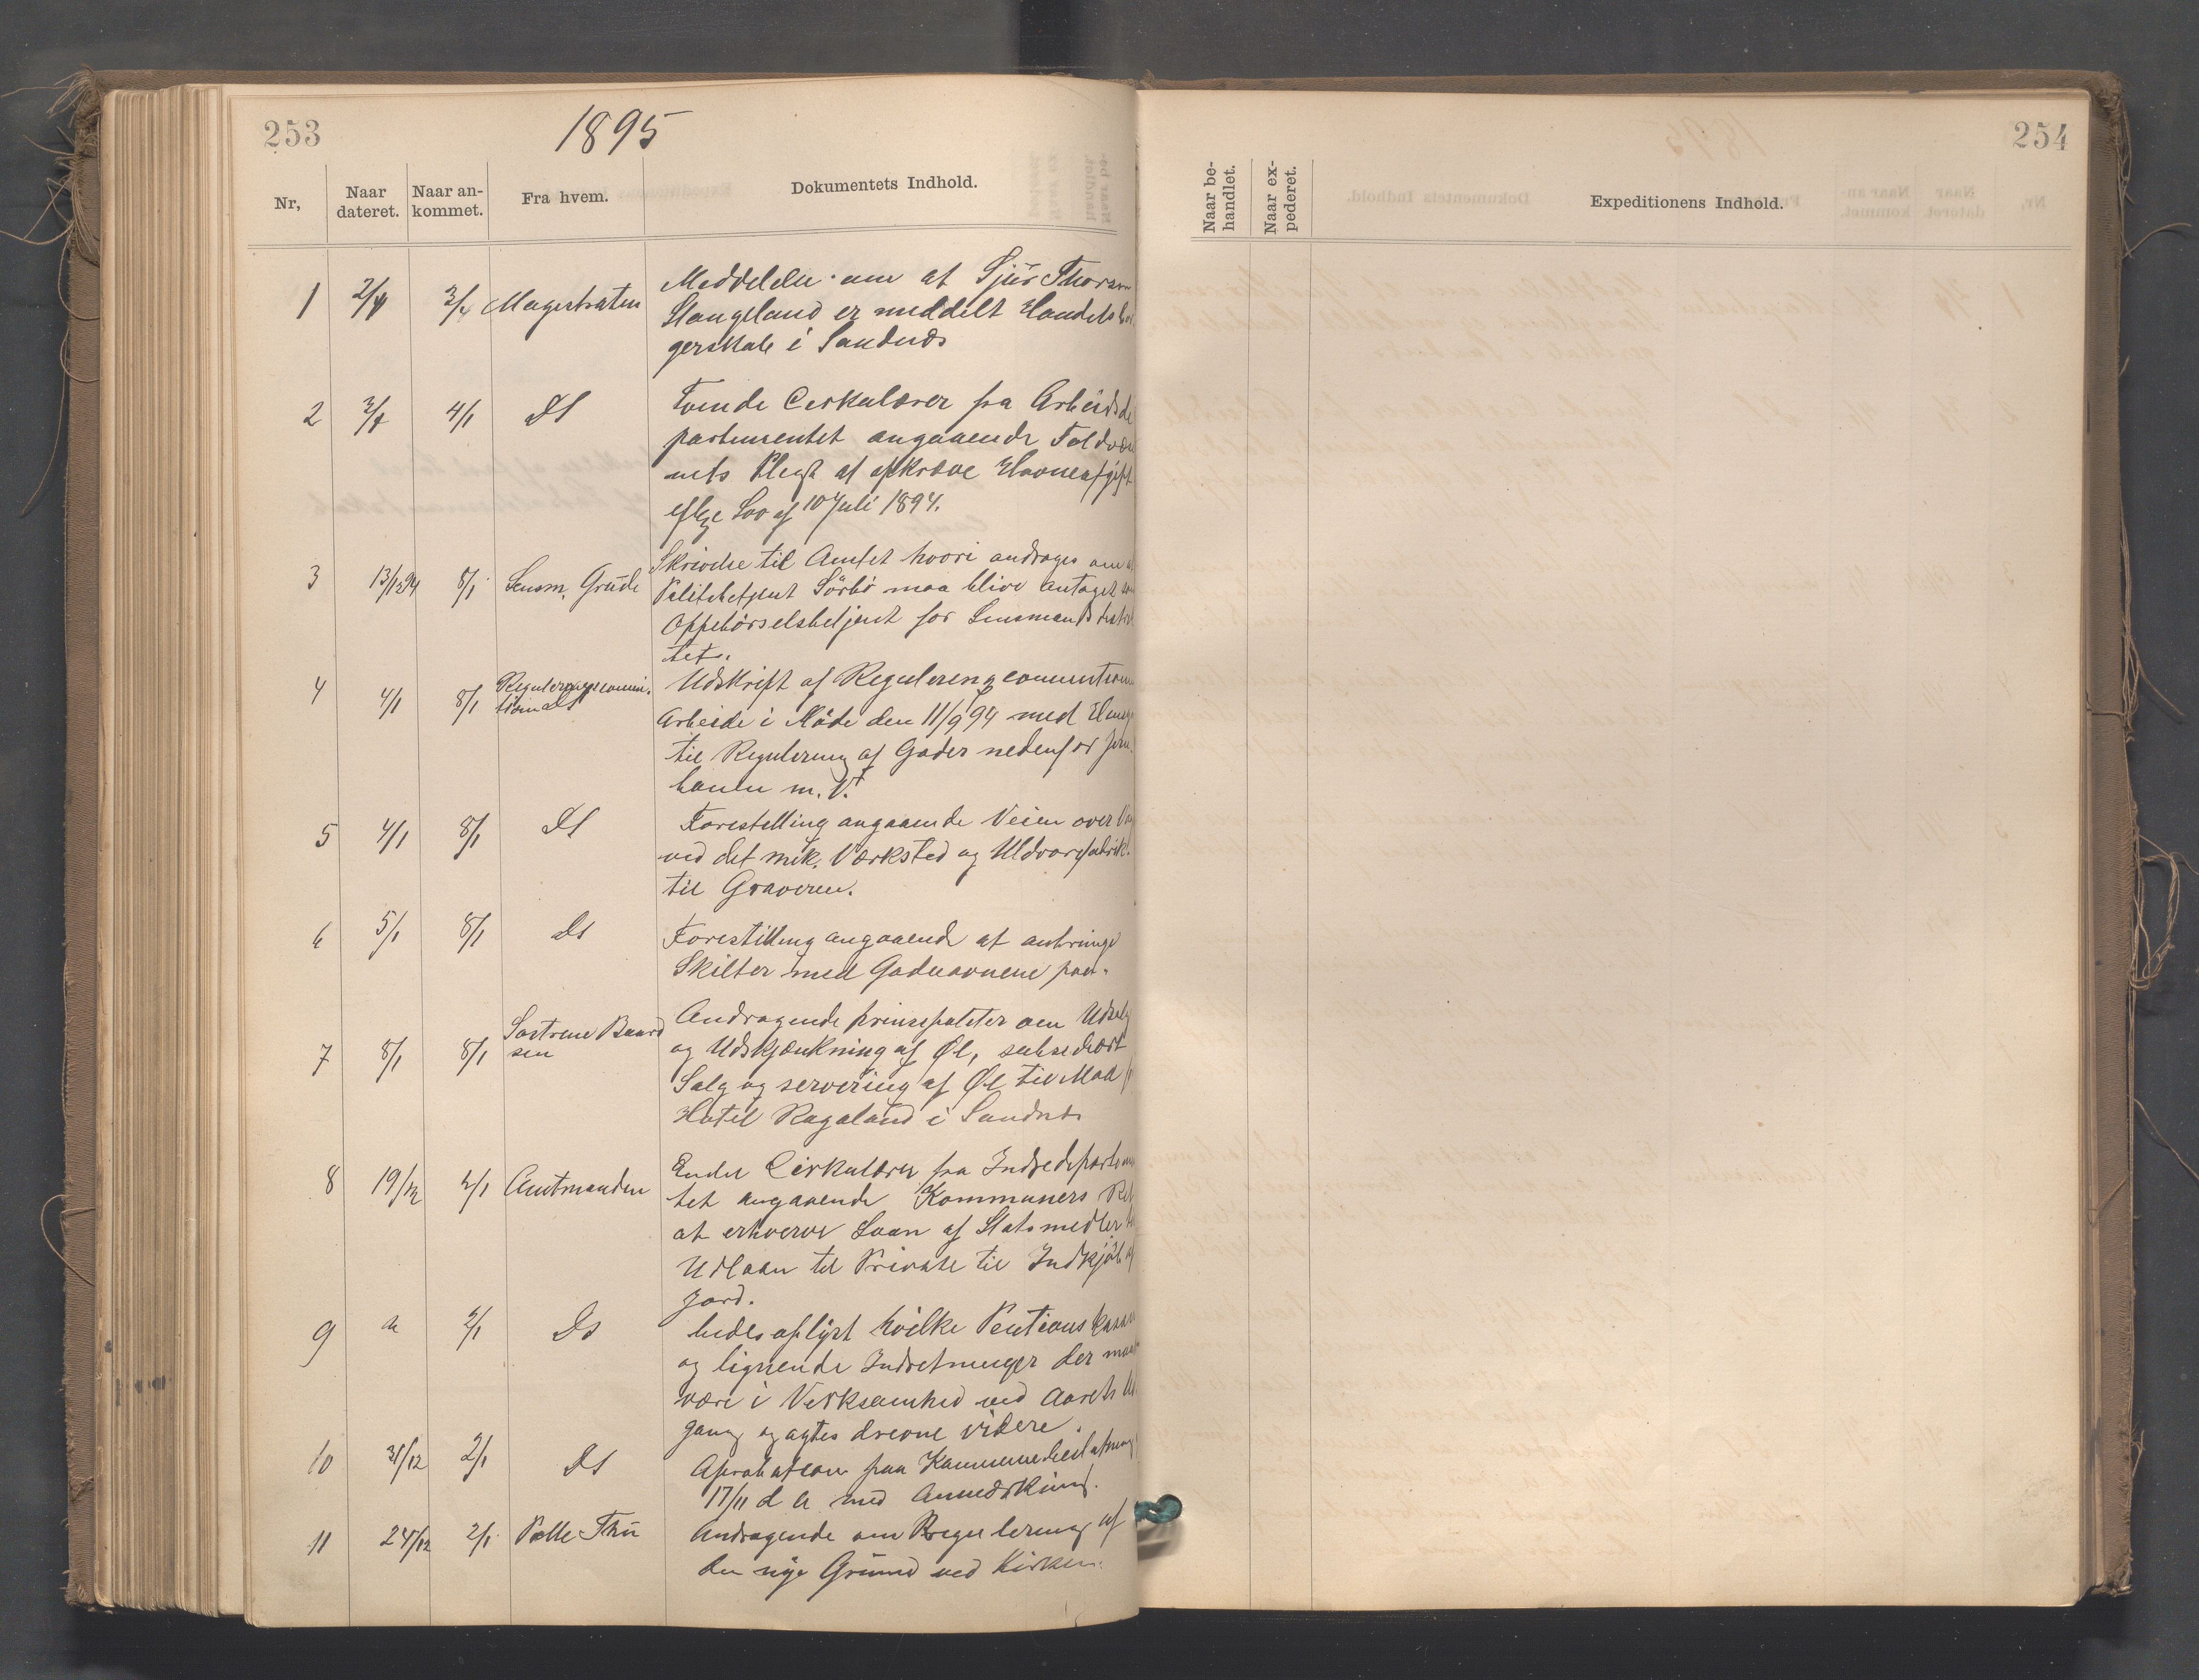 253
1895
Nr,
Naar dateret.
Naar an-kommet.
Fra hvem.
Dokumentets Indhold.
1 2/1 3/1 Magistraten Meddelelse om at Sjur Thorsen
Stangeland er meddelt Handelsbor
gerskab i Sandnæs
2 3/1 4/1 Ds Tvende Cirkulærer fra Arbeidsde
partementet angaaende Toldvæse
nets Pligt at opkræve Havneafgift
efter Lov af 10 Juli 1894.
3 13/12 94 8/1 Lensm. Grude Skrivelse til Amtet hvori andrages om at
Politibetjent Sörbö maa blive antaget som
Oppebörselsbetjent for Lensmandsdistrik
tet.
4 4/1 8/1 Reguleringscommi.
Udskrift af Reguleringscommissionens
Arbeide i Möde den 11/9 94 med
til Regulering af Gader nedenfor Jern
banen m. V.
5 4/1 8/1 Ds Forestilling angaaende Veien over
ved det mek. Værksted og Uldvarefabrik.
til Graveren.
6 5/1 8/1 Ds Forestilling angaaende at anbringe
Skilter med Gadenavnene paa.
7 8/1 8/1 Söstrene Baard
sen
Andragende prinsipaliter om Udsalg
og Udskjænkning af Øl, subsidiært
Salg og servering af Øl til Mad
Hotel Rogaland i Sandnæs
8 19/12 2/1 Amtmanden Endel Cirkulærer fra Indredepartemen
tet angaaende Kommuners Ret
at erhverve Laan af Statsmedler
Udlaan til Private til Indkjöb af
Jord.
9 2/1 Ds bedes oplyst hvilke Pentionskasser
og lignende Indretninger der maatte
være i Virksomhed ved Aarets Ud
gang og agtes drevne videre.
10 31/12 2/1 Ds Aprobation paa Kommunebeslutning
17/11 d A med Anmærkning.
11 24/12 2/1 Palle Thu Andragende om Regulering af
den nye Grund ved Kirken.
254
Naar be-handlet.
Naar ex-pederet.
Expeditionens Indhold.